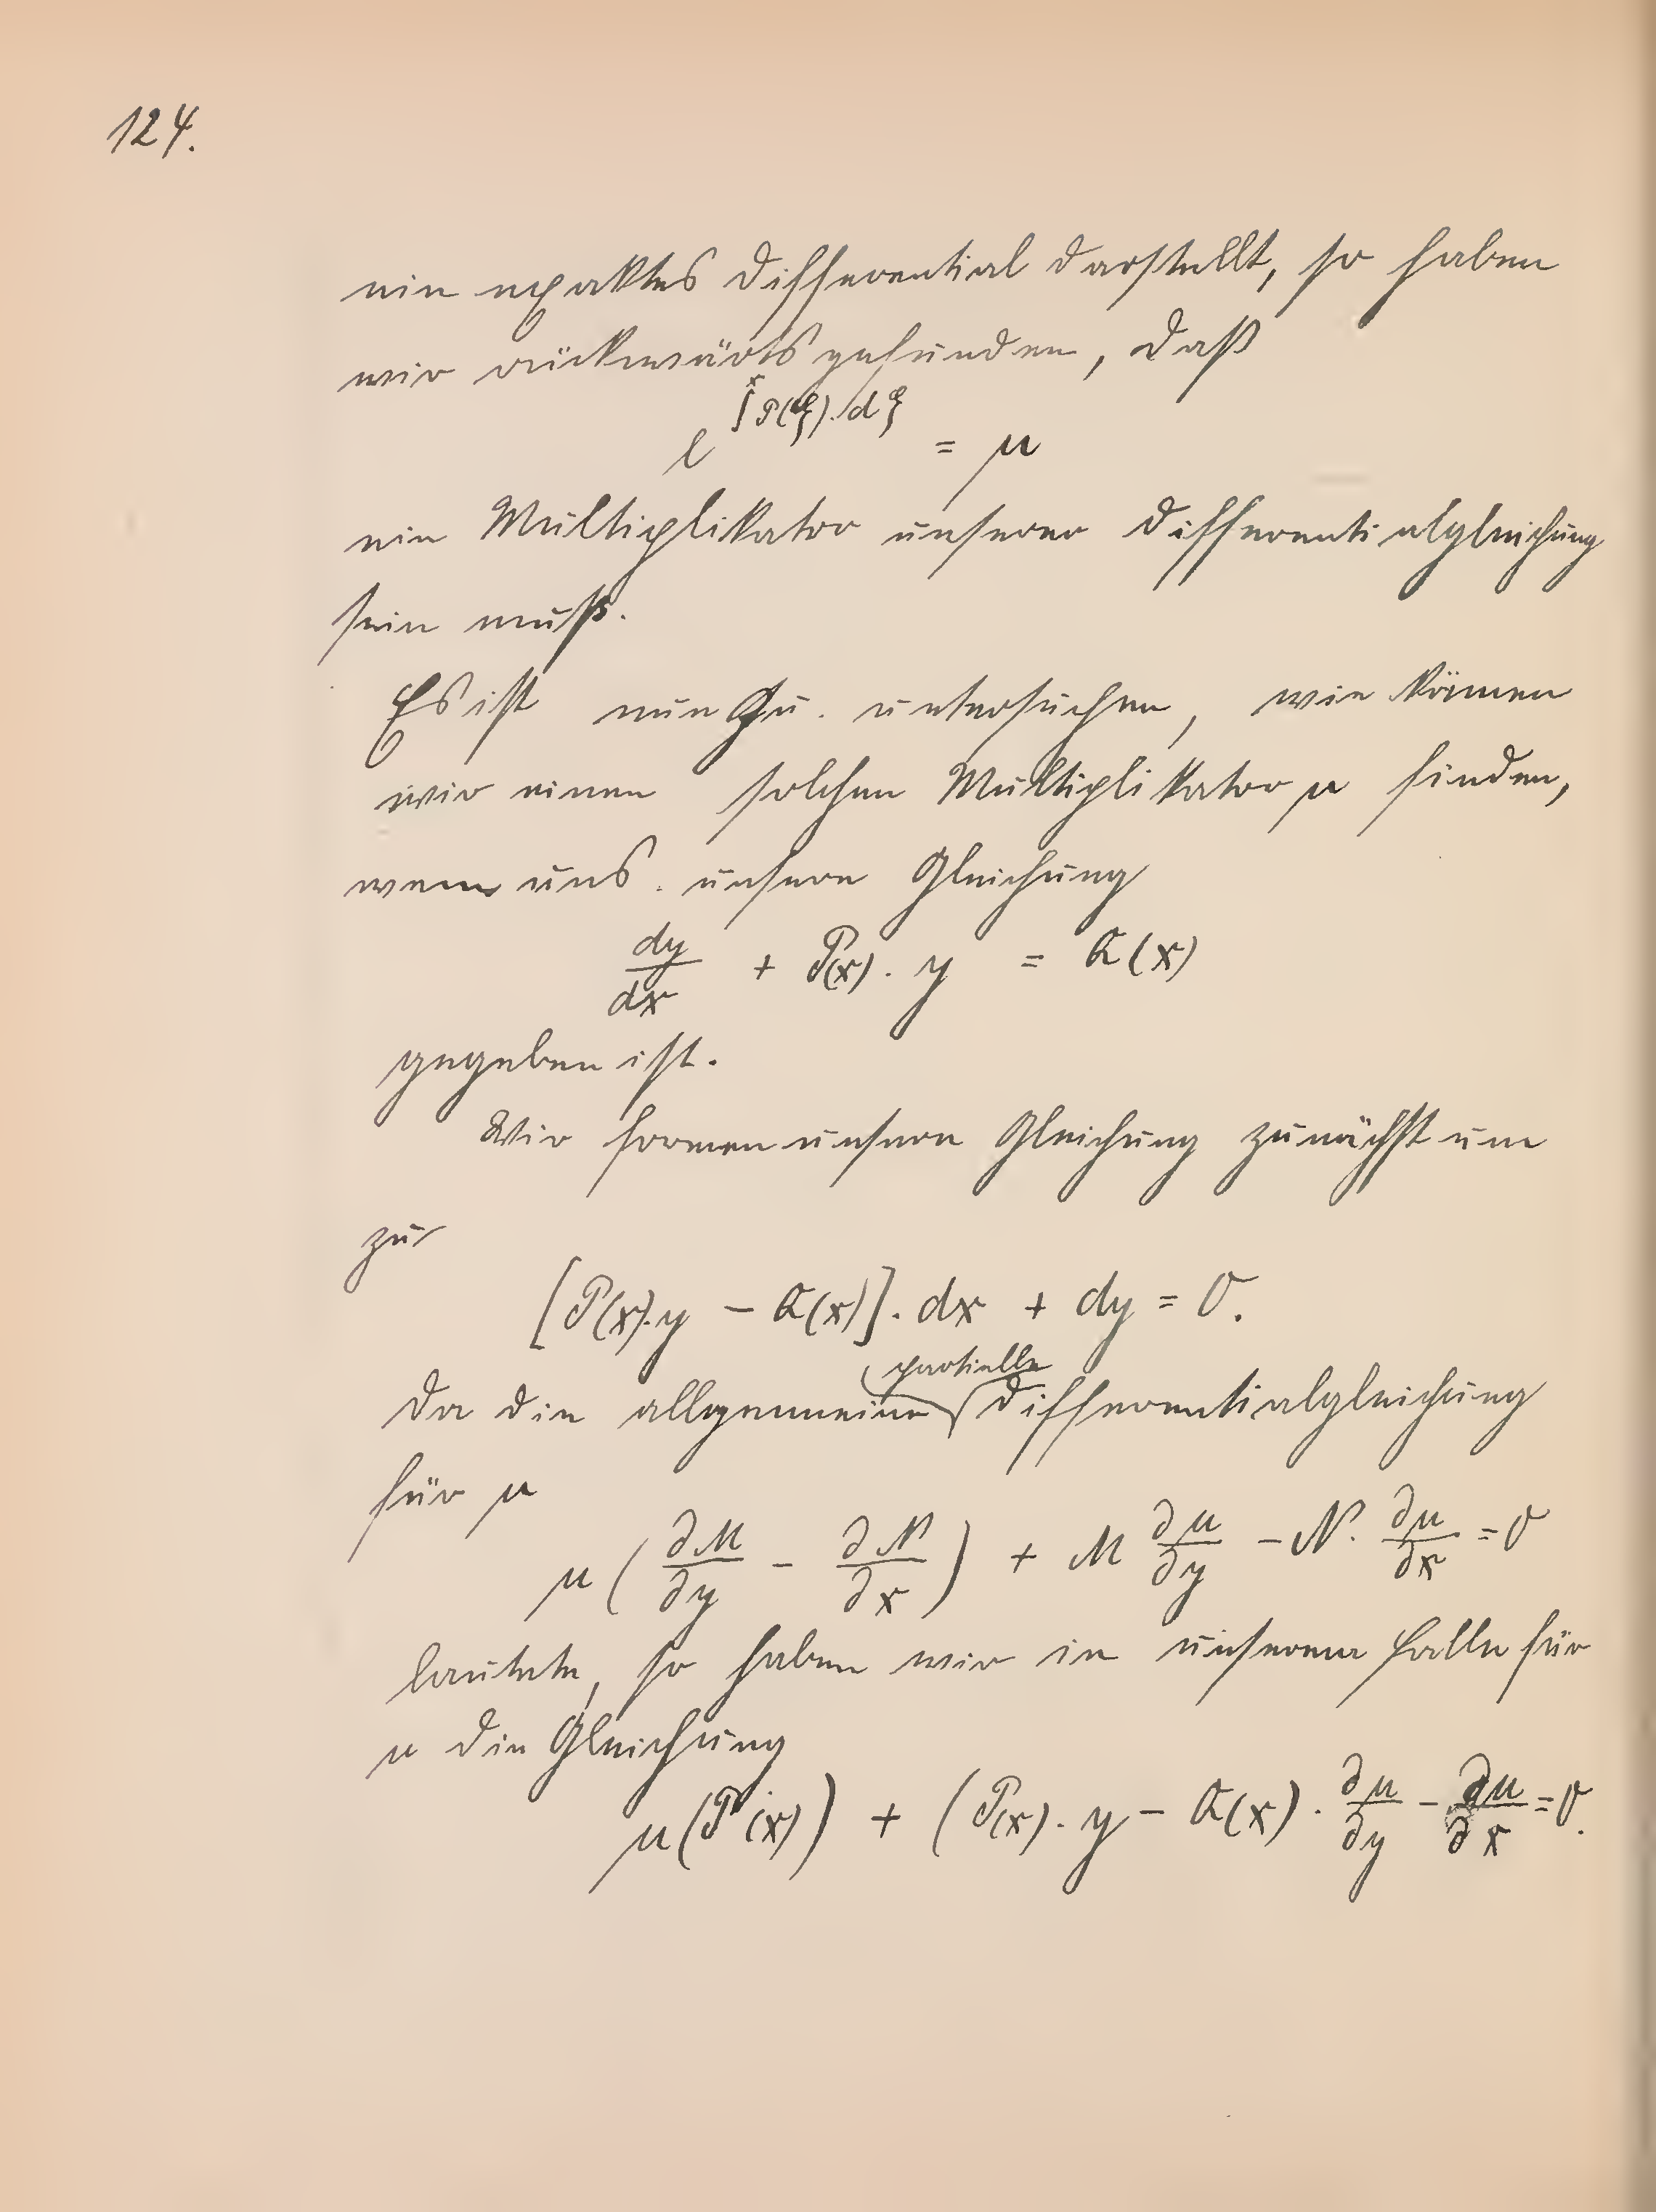 124.
ein exaktes Differential darstellt, so haben
wir rückwärts gefunden, daß
e^{∫^x P(ξ).dξ} = μ
ein Multiplikator unserer Differentialgleichung
sein muß.
Es ist nun zu untersuchen, wie können
wir einen solchen Multiplikator μ finden,
wenn uns unsere Gleichung
dy/dx + P(x). y = Q(x)
gegeben ist.
Wir formen unsere Gleichung zunächst um
zu
[P(x).y − Q(x)]. dx + dy = 0.
partielle
Da die allgemeine Differentialgleichung
für μ
μ (∂M/∂y − ∂N/∂x) + M ∂μ/∂y − N. ∂μ/∂x = 0
lautete, so haben wir in unserem Falle für
μ die Gleichung
μ(P(x)) + (P(x). y − Q(x)). ∂μ/∂y − ∂μ/∂x = 0.